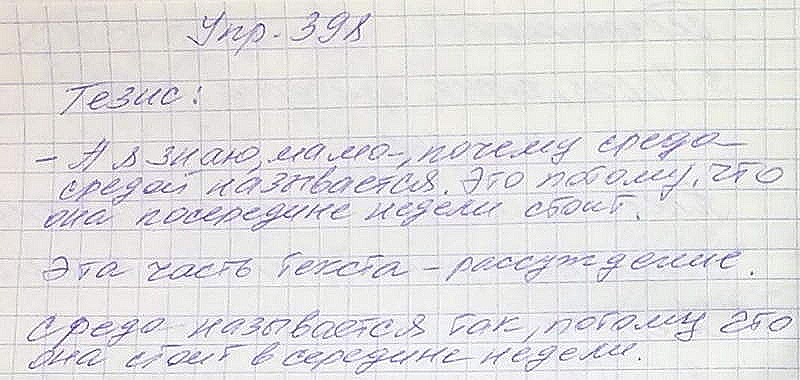 Упр. 398
Тезис:
- А я знаю, мама, почему среда
средой называется. Это потому, что
она посередине недели стоит.
Эта часть текста - рассуждение.
Среда называется так, потому что
она стоит в середине недели.